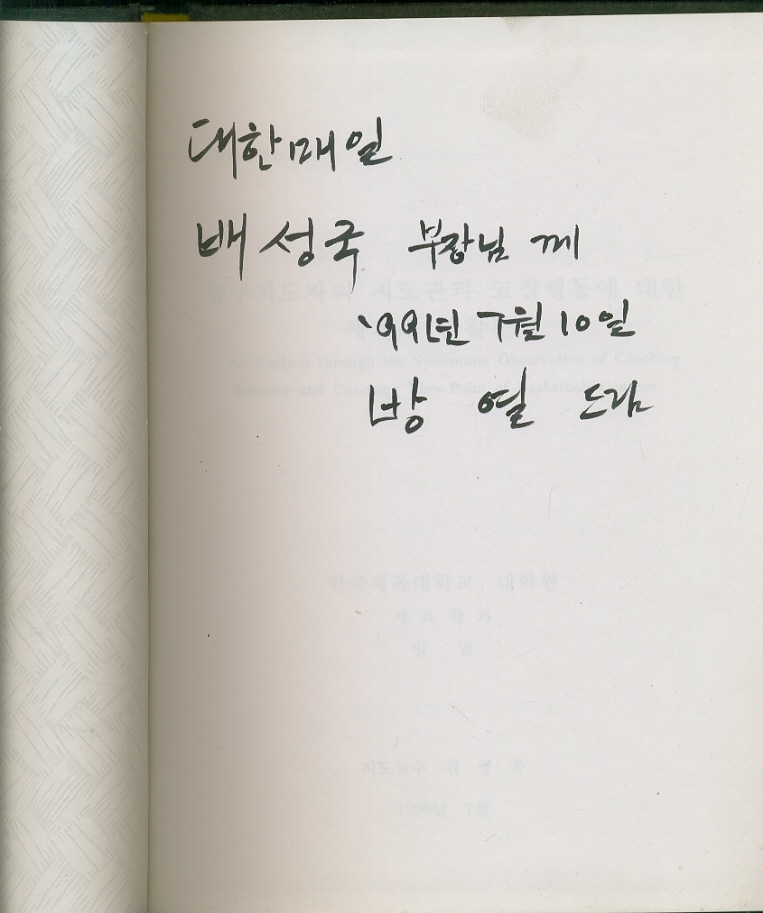 대한매일
배성국 부장님 께
'99년 7월 10일
방 열 드림
지도자의 지도관과 코칭행동에 대한
through the Systematic Observation of Coaching
한국체육대학교 대학원
체 육 학 과
방 열
지도교수
1999년 7월